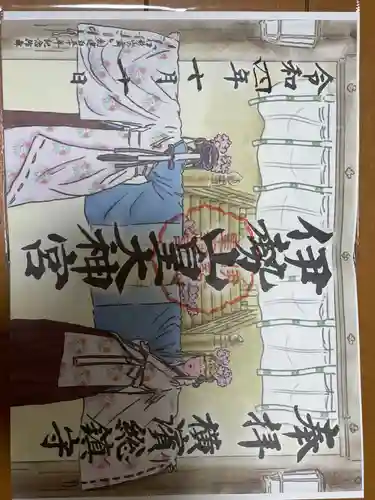 奉拝 横濱総鎮守
伊勢山皇大神宮
令和四年十月十日